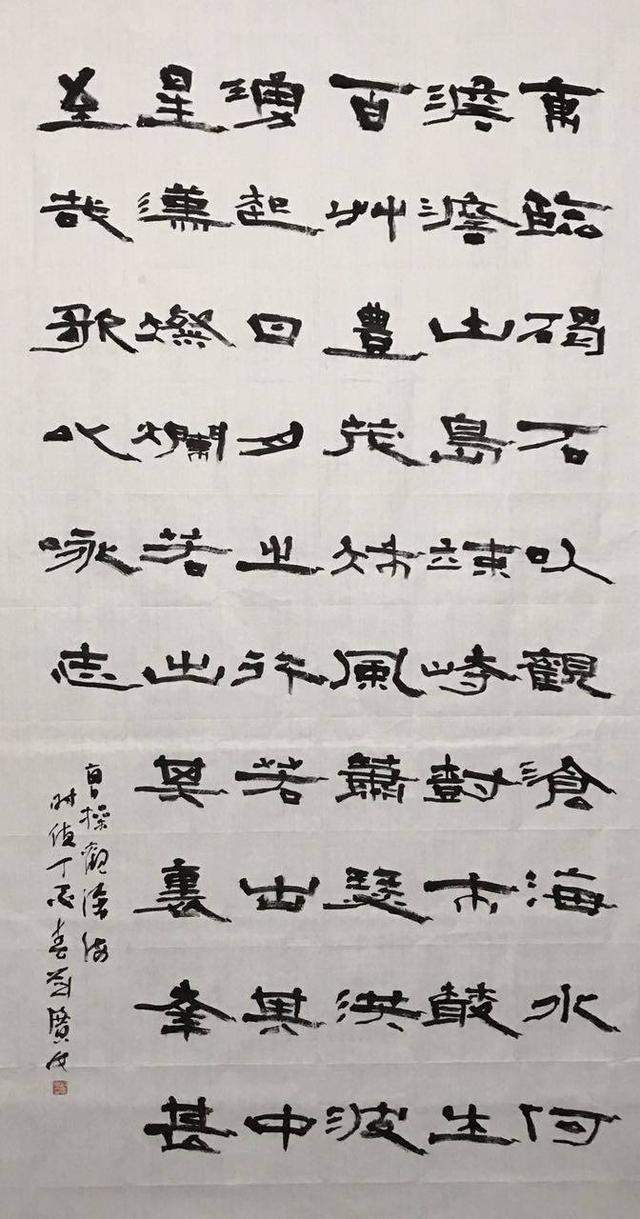 東臨碣石以觀滄海水何
澹澹山島竦峙樹木叢生
百艸豊茂秋風蕭瑟洪波
湧起日月之行若出其中
星漢燦爛若出其裏幸甚
至哉歌以咏志
曹操觀滄海
時值丁酉春廣